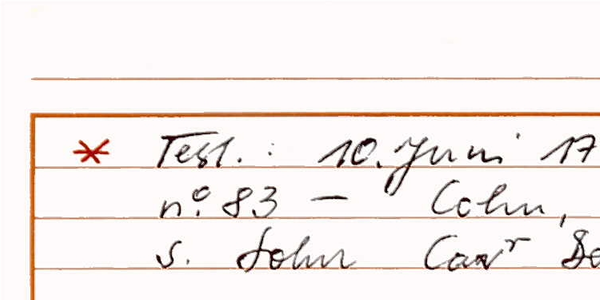 * Test. : 10. Juni 17
n° 83 — Cohn,
s. Sohn Carʳ